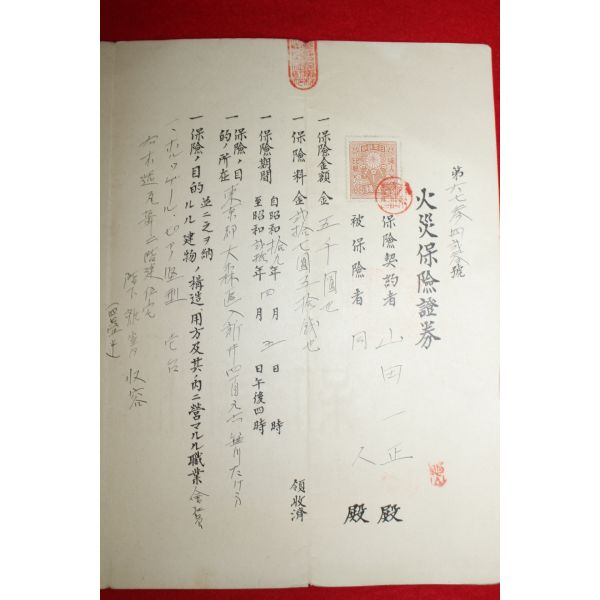 第六七叁四貳叁號
火災保險證券
保險契約者 山田一正 殿
被保險者 同人 殿
一 保險金額 金五千圓也
一 保險料 金貳拾七圓五拾錢也 領收濟
一 保險期間 自昭和拾九年四月 日 時
至昭和貳拾年四月 日午後四時
一 保險ノ目的ノ所在 東京都大森區入新井四丁目
一 保險ノ目的ルル建物ノ構造、用方及其ノ内ニ營マルル職業 會社員
並ニ之ヲ納
一、ホルーゲール ピアノ 壱台
右木造瓦葺二階建住宅
階下 收容